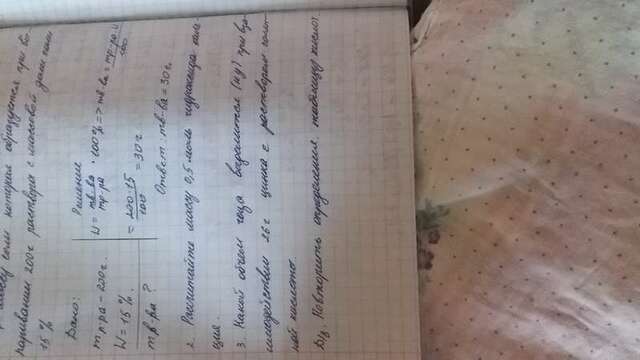 массу соли которая образуется при вы-
паривании 200г раствора с массовой долей соли
15 %
Дано:
m р-ра - 200г.
W = 15 %.
m в-ва ?
Решение
W = mв-ва / mр-ра · 100% => mв-ва = mр-ра·W / 100
= 200·15 / 100 = 30г.
Ответ: mв-ва = 30г.
2. Расчитайте массу 0,5 моль гидроксида каль-
ция.
3. Какой объем газа выделится (н.у) при вза-
имодействии 26г цинка с раствором соля-
ной кислоты.
Д/з. Повторить определения, таблицу кислот